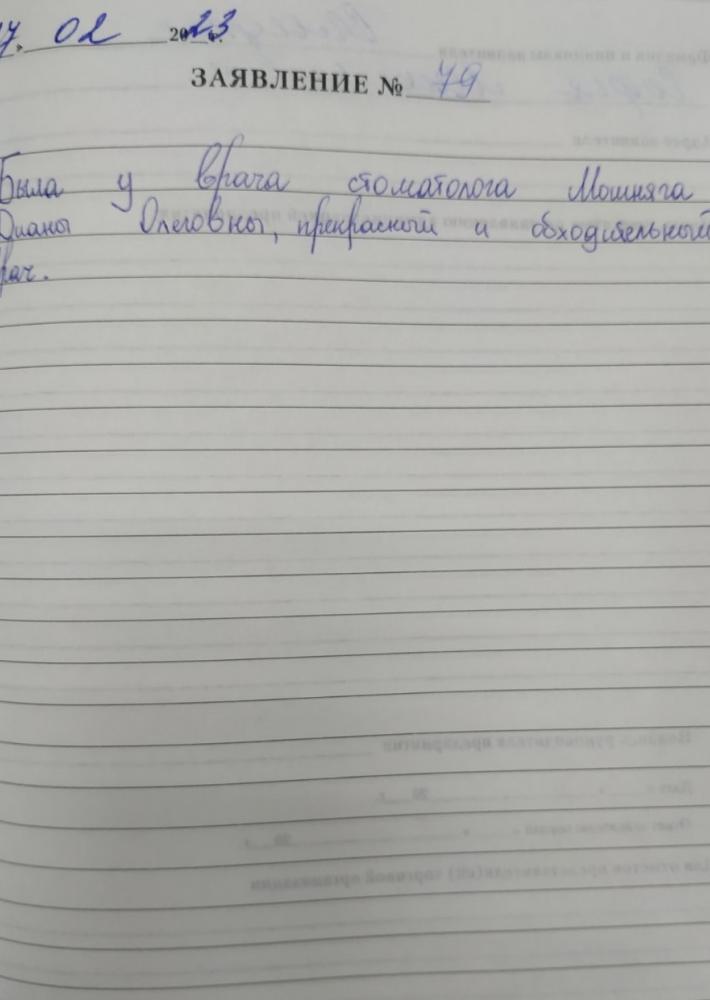 7. 02 2023 г.
ЗАЯВЛЕНИЕ № 79
Была у врача стоматолога Мошняга
Дианы Олеговны, прекрасный и обходительный
врач.